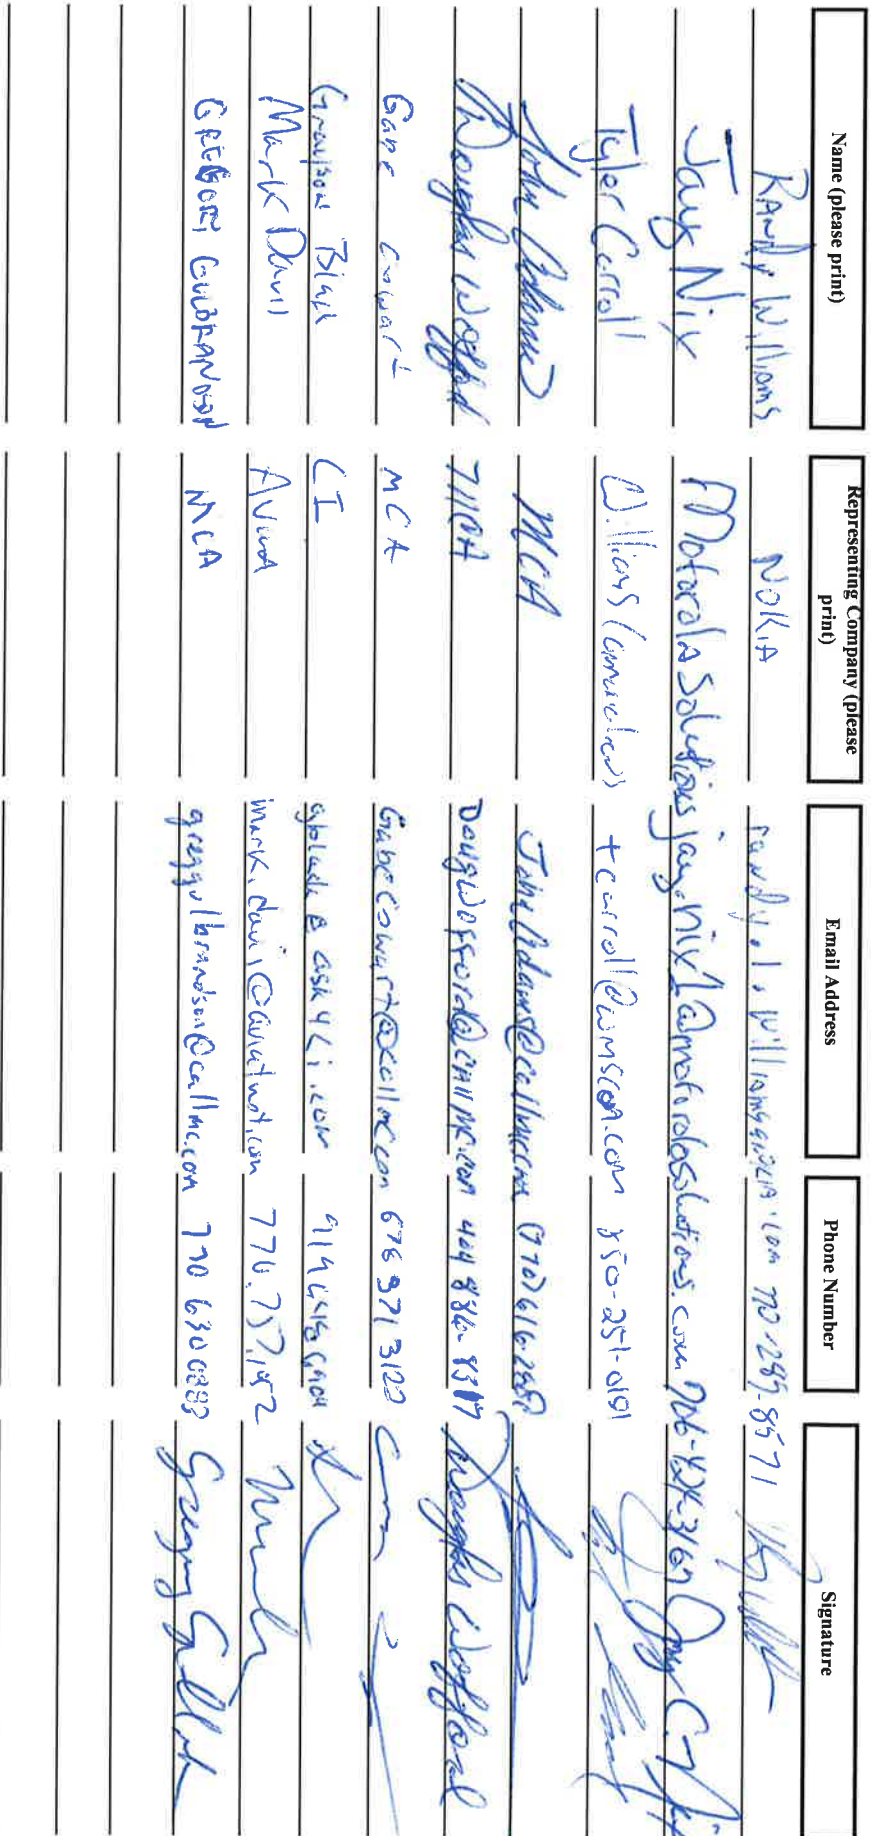 Name (please print) Representing Company (please print) Email Address Phone Number Signature
RANDY Williams NOKIA randy.l.williams@nokia.com 770-289-8571
Jay Nix Motorola Solutions jay.nix1@motorolasolutions.com
Tyler Carroll Williams tcarroll@wmscom.com 850-251-0191
John Adams MCA JohnAdams@callmc.com
Douglas Wofford MCA DougWofford@callmc.com Douglas Wofford
Gabe Cowart MCA GabeCowart@callmc.com 678 971 3122
CI
Mark Davis Aviat mark.davis@aviatnet.com
GREGORY GULBRANDSON MCA greggulbrandson@callmc.com 770 630 0883